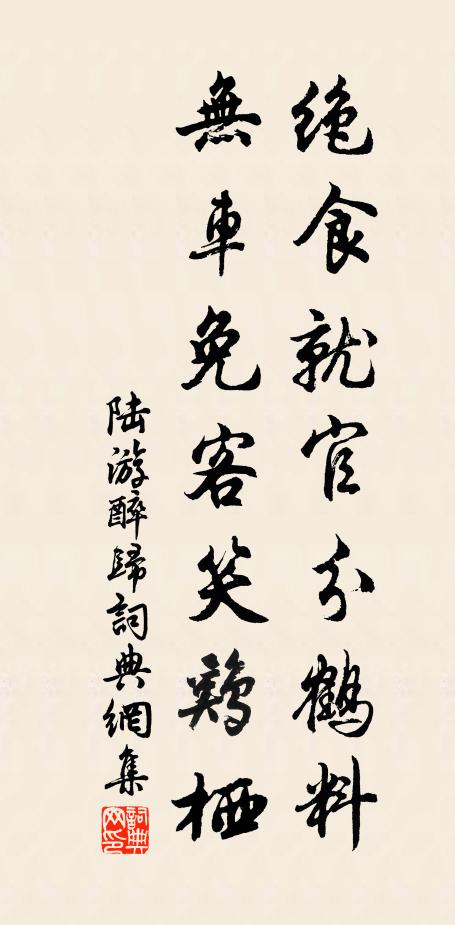 绝食就官分鶴料
無車免客笑鷄栖
陆游醉歸詞典網集
詞典网印